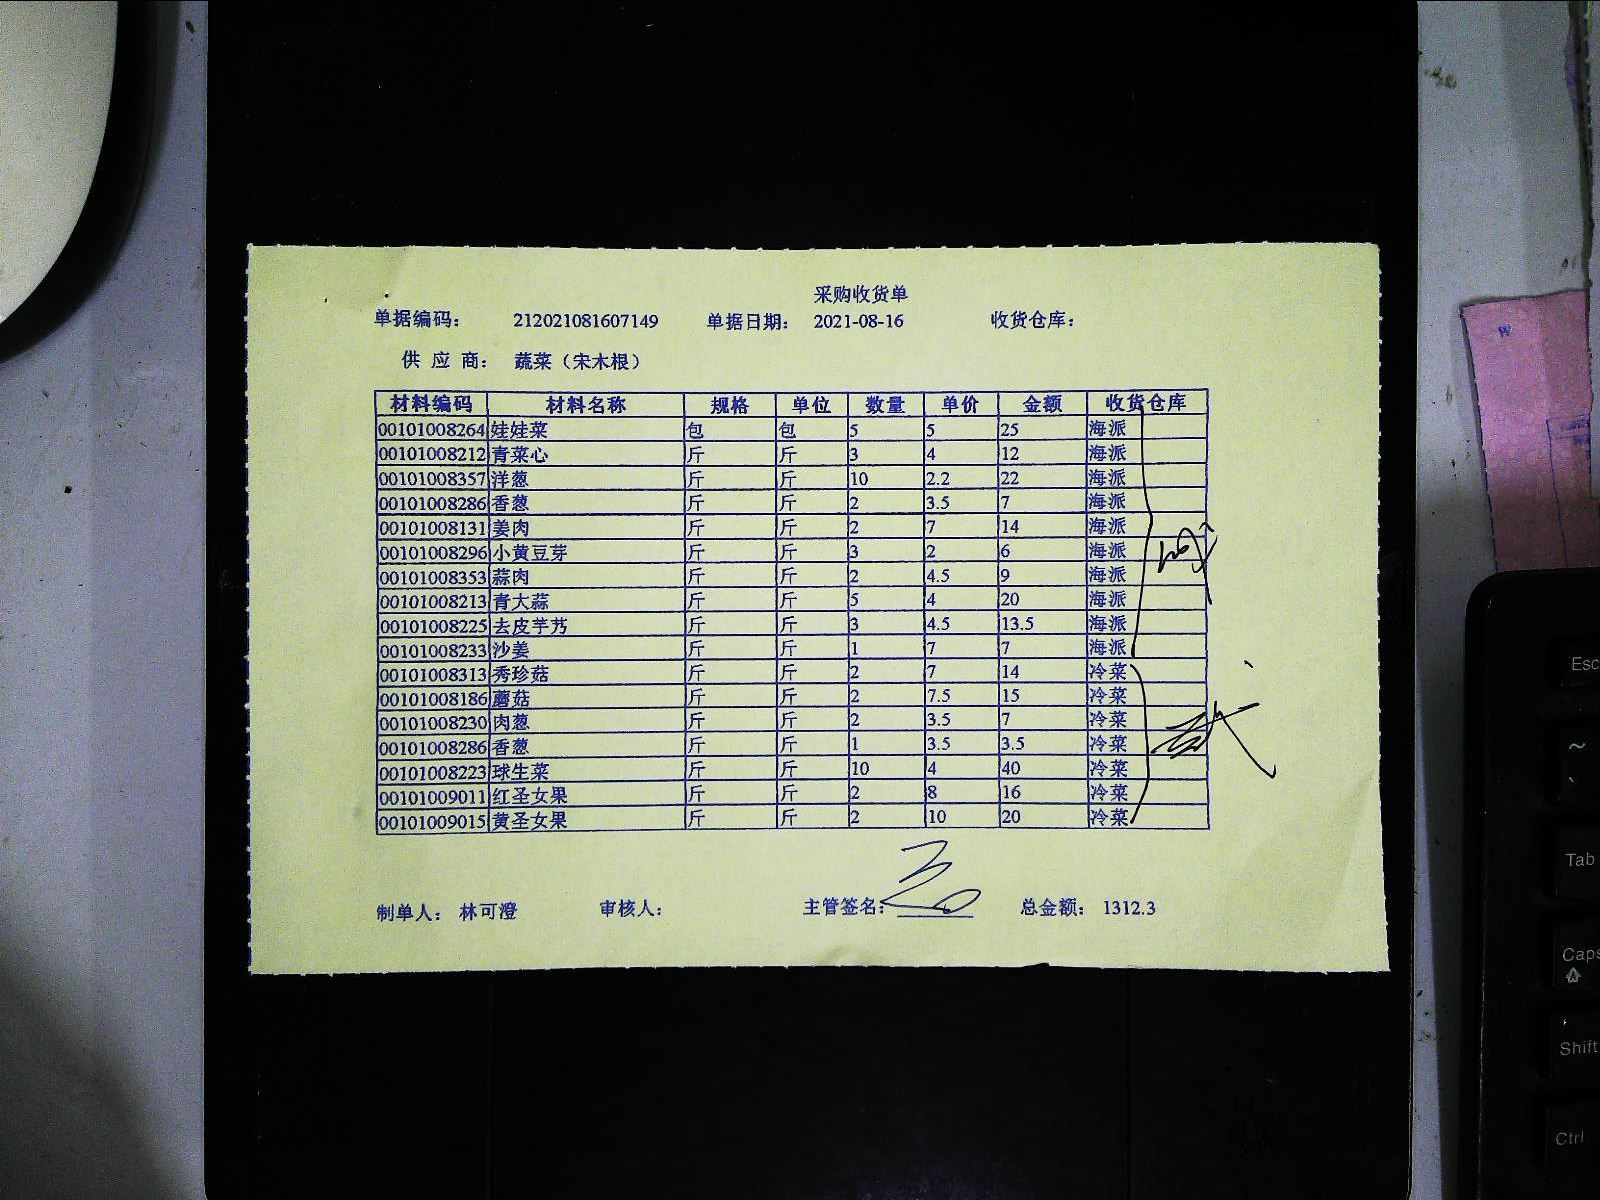 采购收货单
单据编码： 212021081607149 单据日期： 2021-08-16 收货仓库：
供 应 商： 蔬菜（宋木根）
材料编码 材料名称 规格 单位 数量 单价 金额 收货仓库
00101008264 娃娃菜 包 包 5 5 25 海派
00101008212 青菜心 斤 斤 3 4 12 海派
00101008357 洋葱 斤 斤 10 2.2 22 海派
00101008286 香葱 斤 斤 2 3.5 7 海派
00101008131 姜肉 斤 斤 2 7 14 海派
00101008296 小黄豆芽 斤 斤 3 2 6 海派
00101008353 蒜肉 斤 斤 2 4.5 9 海派
00101008213 青大蒜 斤 斤 5 4 20 海派
00101008225 去皮芋艿 斤 斤 3 4.5 13.5 海派
00101008233 沙姜 斤 斤 1 7 7 海派
00101008313 秀珍菇 斤 斤 2 7 14 冷菜
00101008186 蘑菇 斤 斤 2 7.5 15 冷菜
00101008230 肉葱 斤 斤 2 3.5 7 冷菜
00101008286 香葱 斤 斤 1 3.5 3.5 冷菜
00101008223 球生菜 斤 斤 10 4 40 冷菜
00101009011 红圣女果 斤 斤 2 8 16 冷菜
00101009015 黄圣女果 斤 斤 2 10 20 冷菜
制单人： 林可澄 审核人： 主管签名： 总金额： 1312.3
Esc
~
`
Tab
Caps
A
Shift
Ctrl